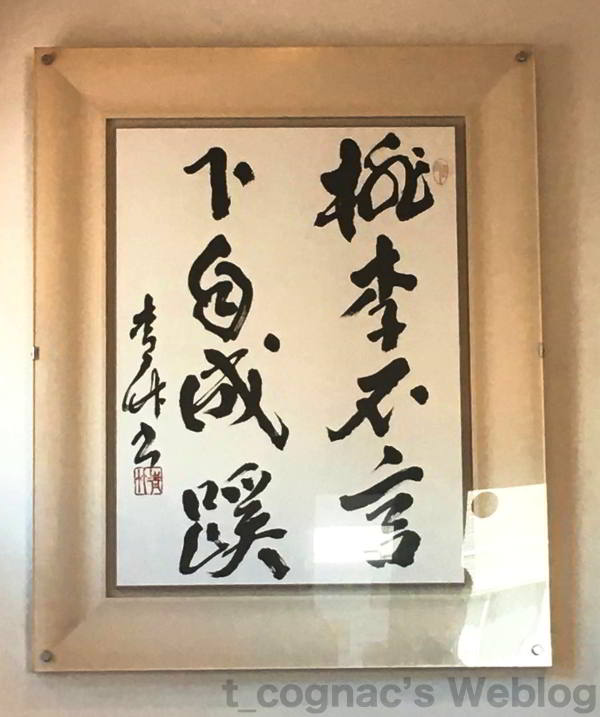 桃李不言
下自成蹊
t_cognac's Weblog